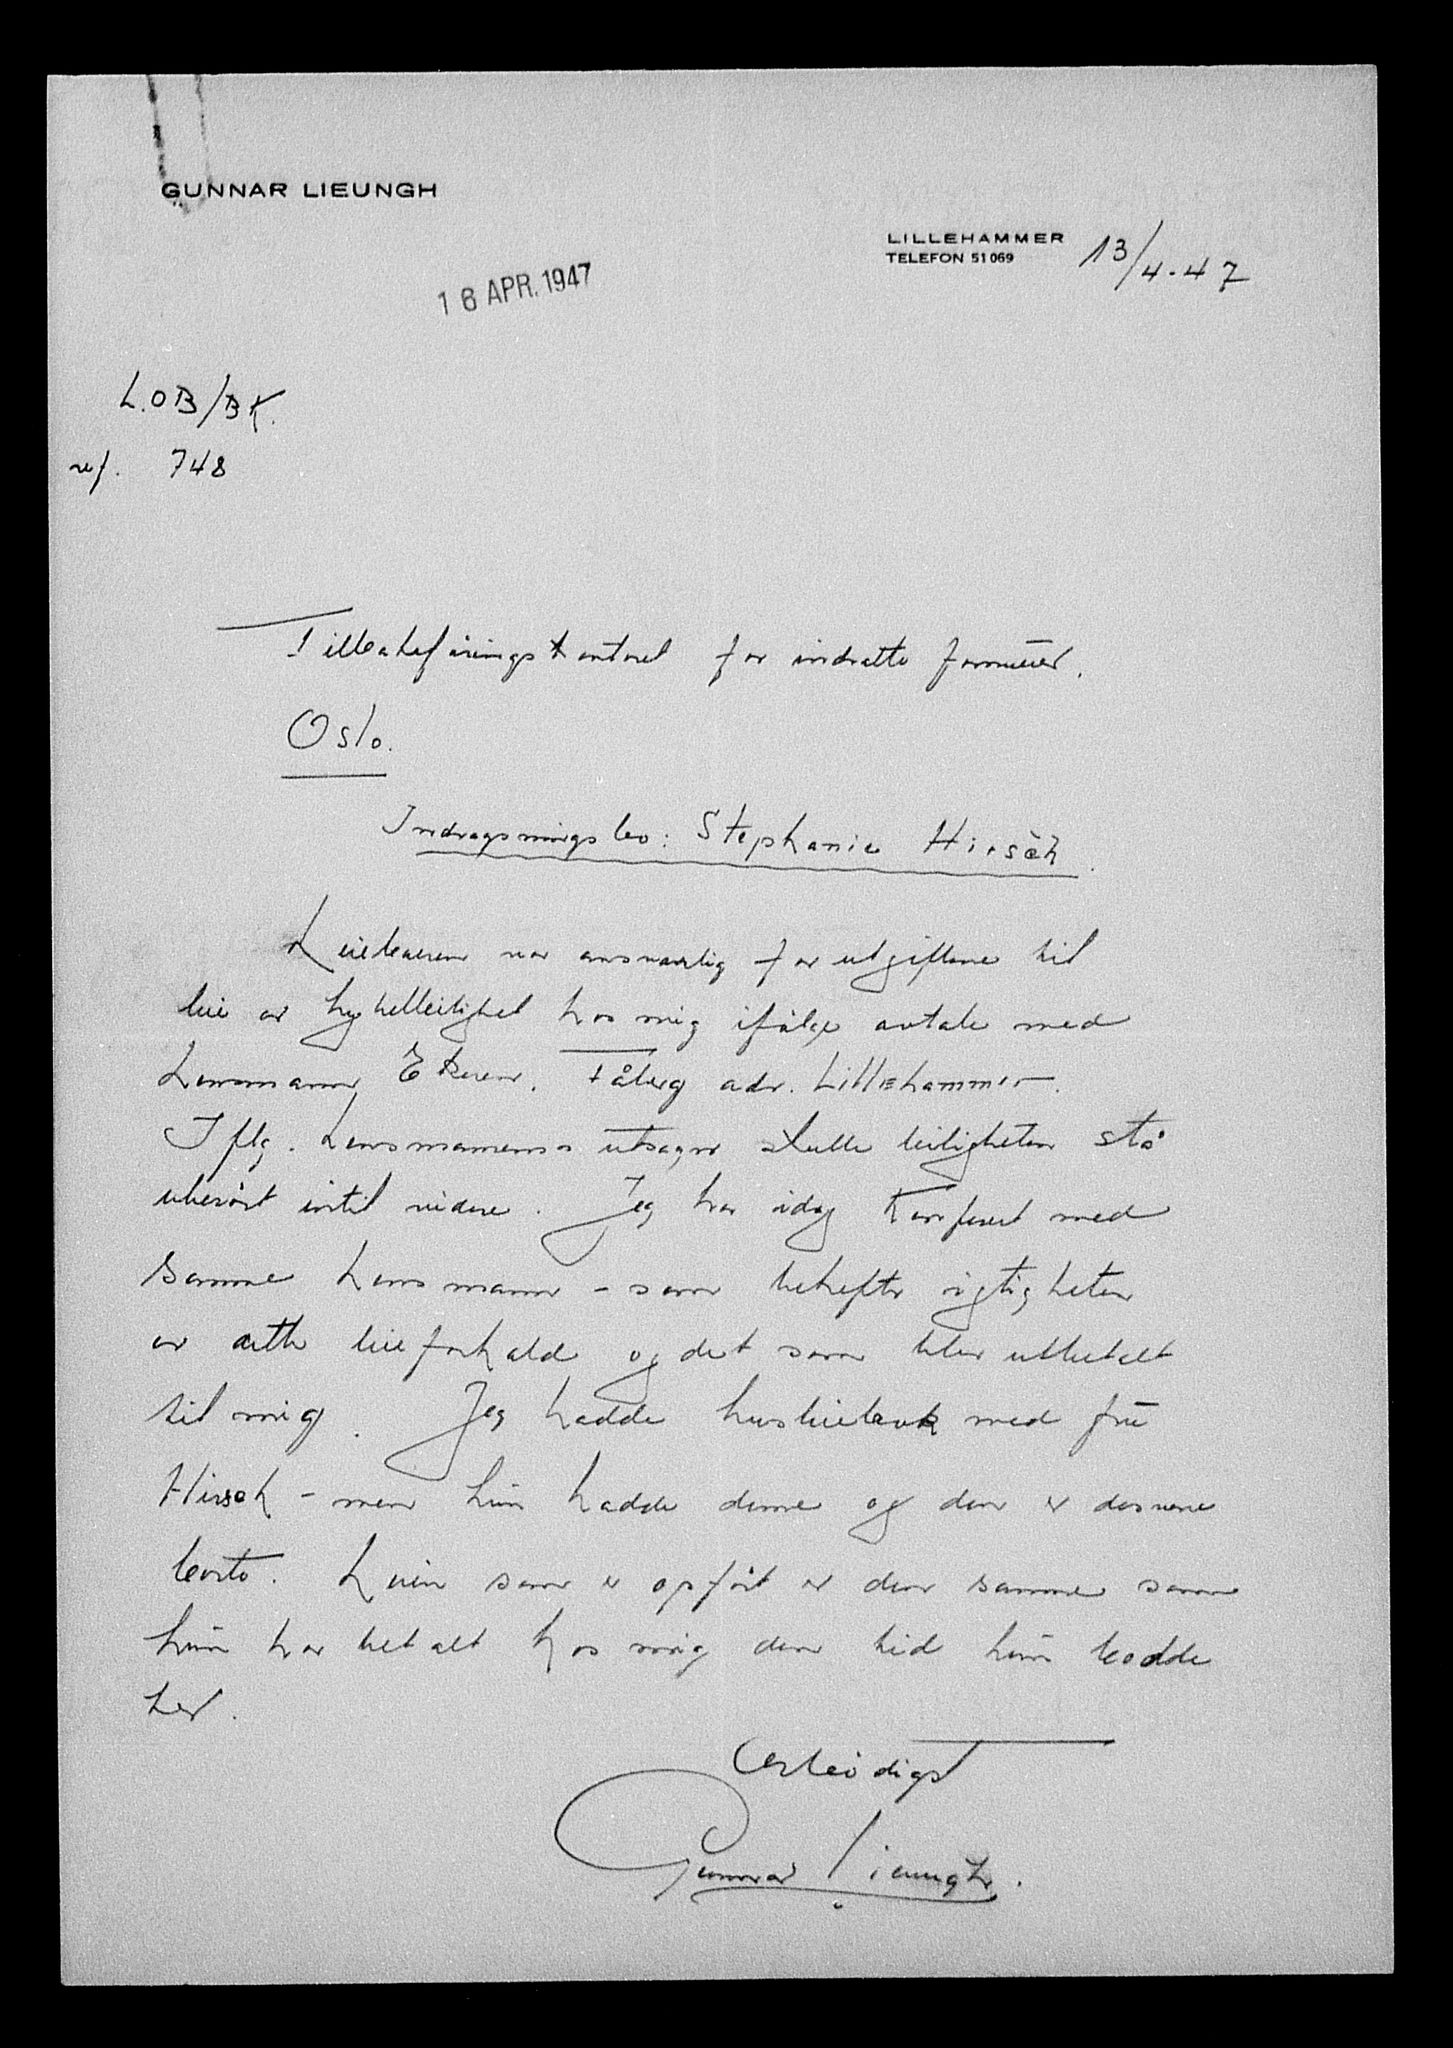 GUNNAR LIEUNGH
LILLEHAMMER
TELEFON 51069
13/4-47
16 APR. 1947
L.OB/BK.
ref. 748
Tilbakeføringskontoret for inndratte formuer.
Oslo.
Indragsningsbo: Stephanie Hirsch.
Leieboeren var ansvarlig for utgiftene til
leie av hybelleilighet hos mig ifølge avtale med
Lensmann Ekeren. Fåberg adr. Lillehammer.
Iflg. Lensmannens utsagn skulle leiligheten stå
uberørt intil videre. Jeg har idag konferert med
samme Lensmann - som bekrefter rigtigheten
av dette leieforhold og det som blev utbetalt
til mig. Jeg hadde husleiebok med frue
Hirsch - men hun hadde denne og den er desverre
borte. Leien som er opført er den samme som
hun har betalt hos mig den tid hun bodde
her.
Ærbødigst
Gunnar Lieungh.